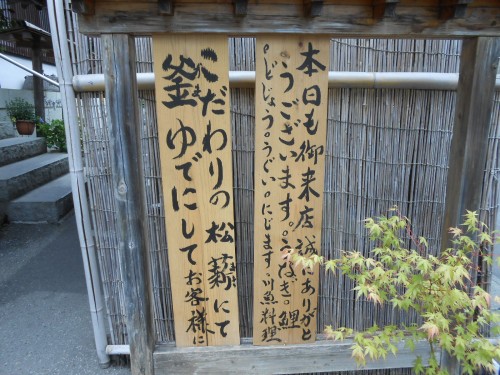 本日も御来店誠にありがと
うございます。うなぎ。鯉
。どじょう。うぐい。にじます、川魚料理
こだわりの松薪にて
釜ゆでにしてお客様に